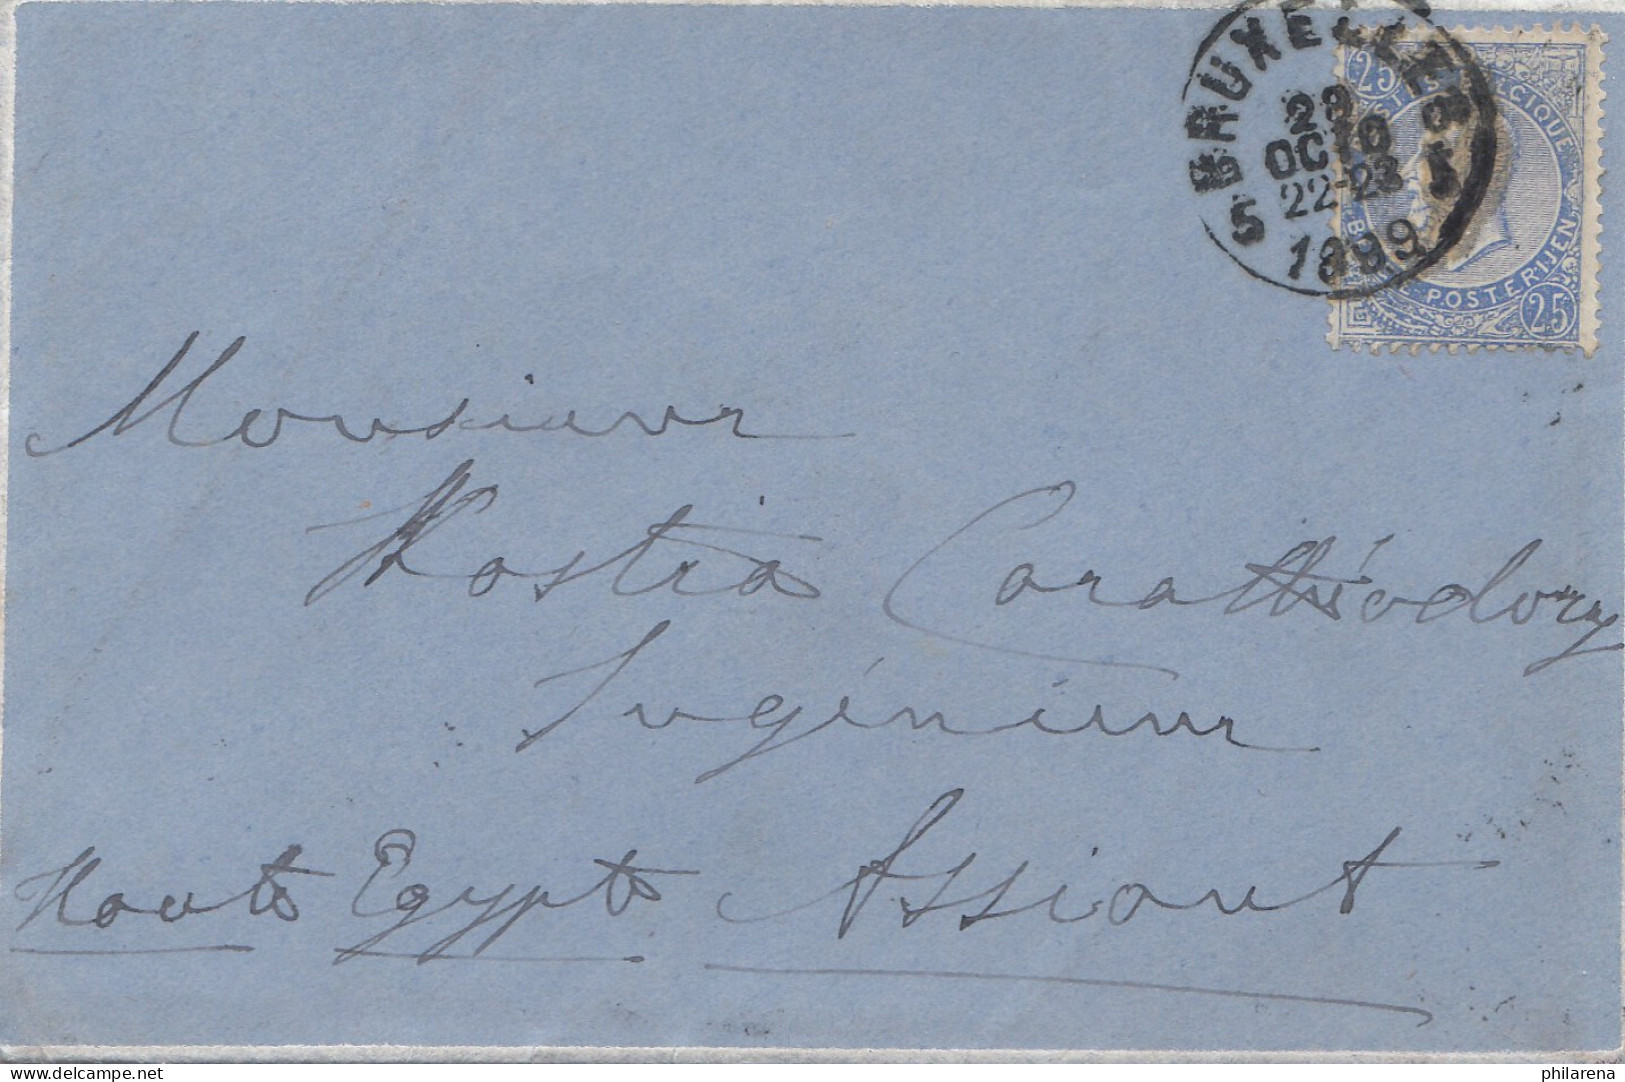 BRUXELLES 5
29
OCTO
22-23
1899
25
POSTERIJEN
25
Monsieur
Kostia Carathéodory
Ingénieur
Haute Egypte Assiout
delcampe.net
philarena